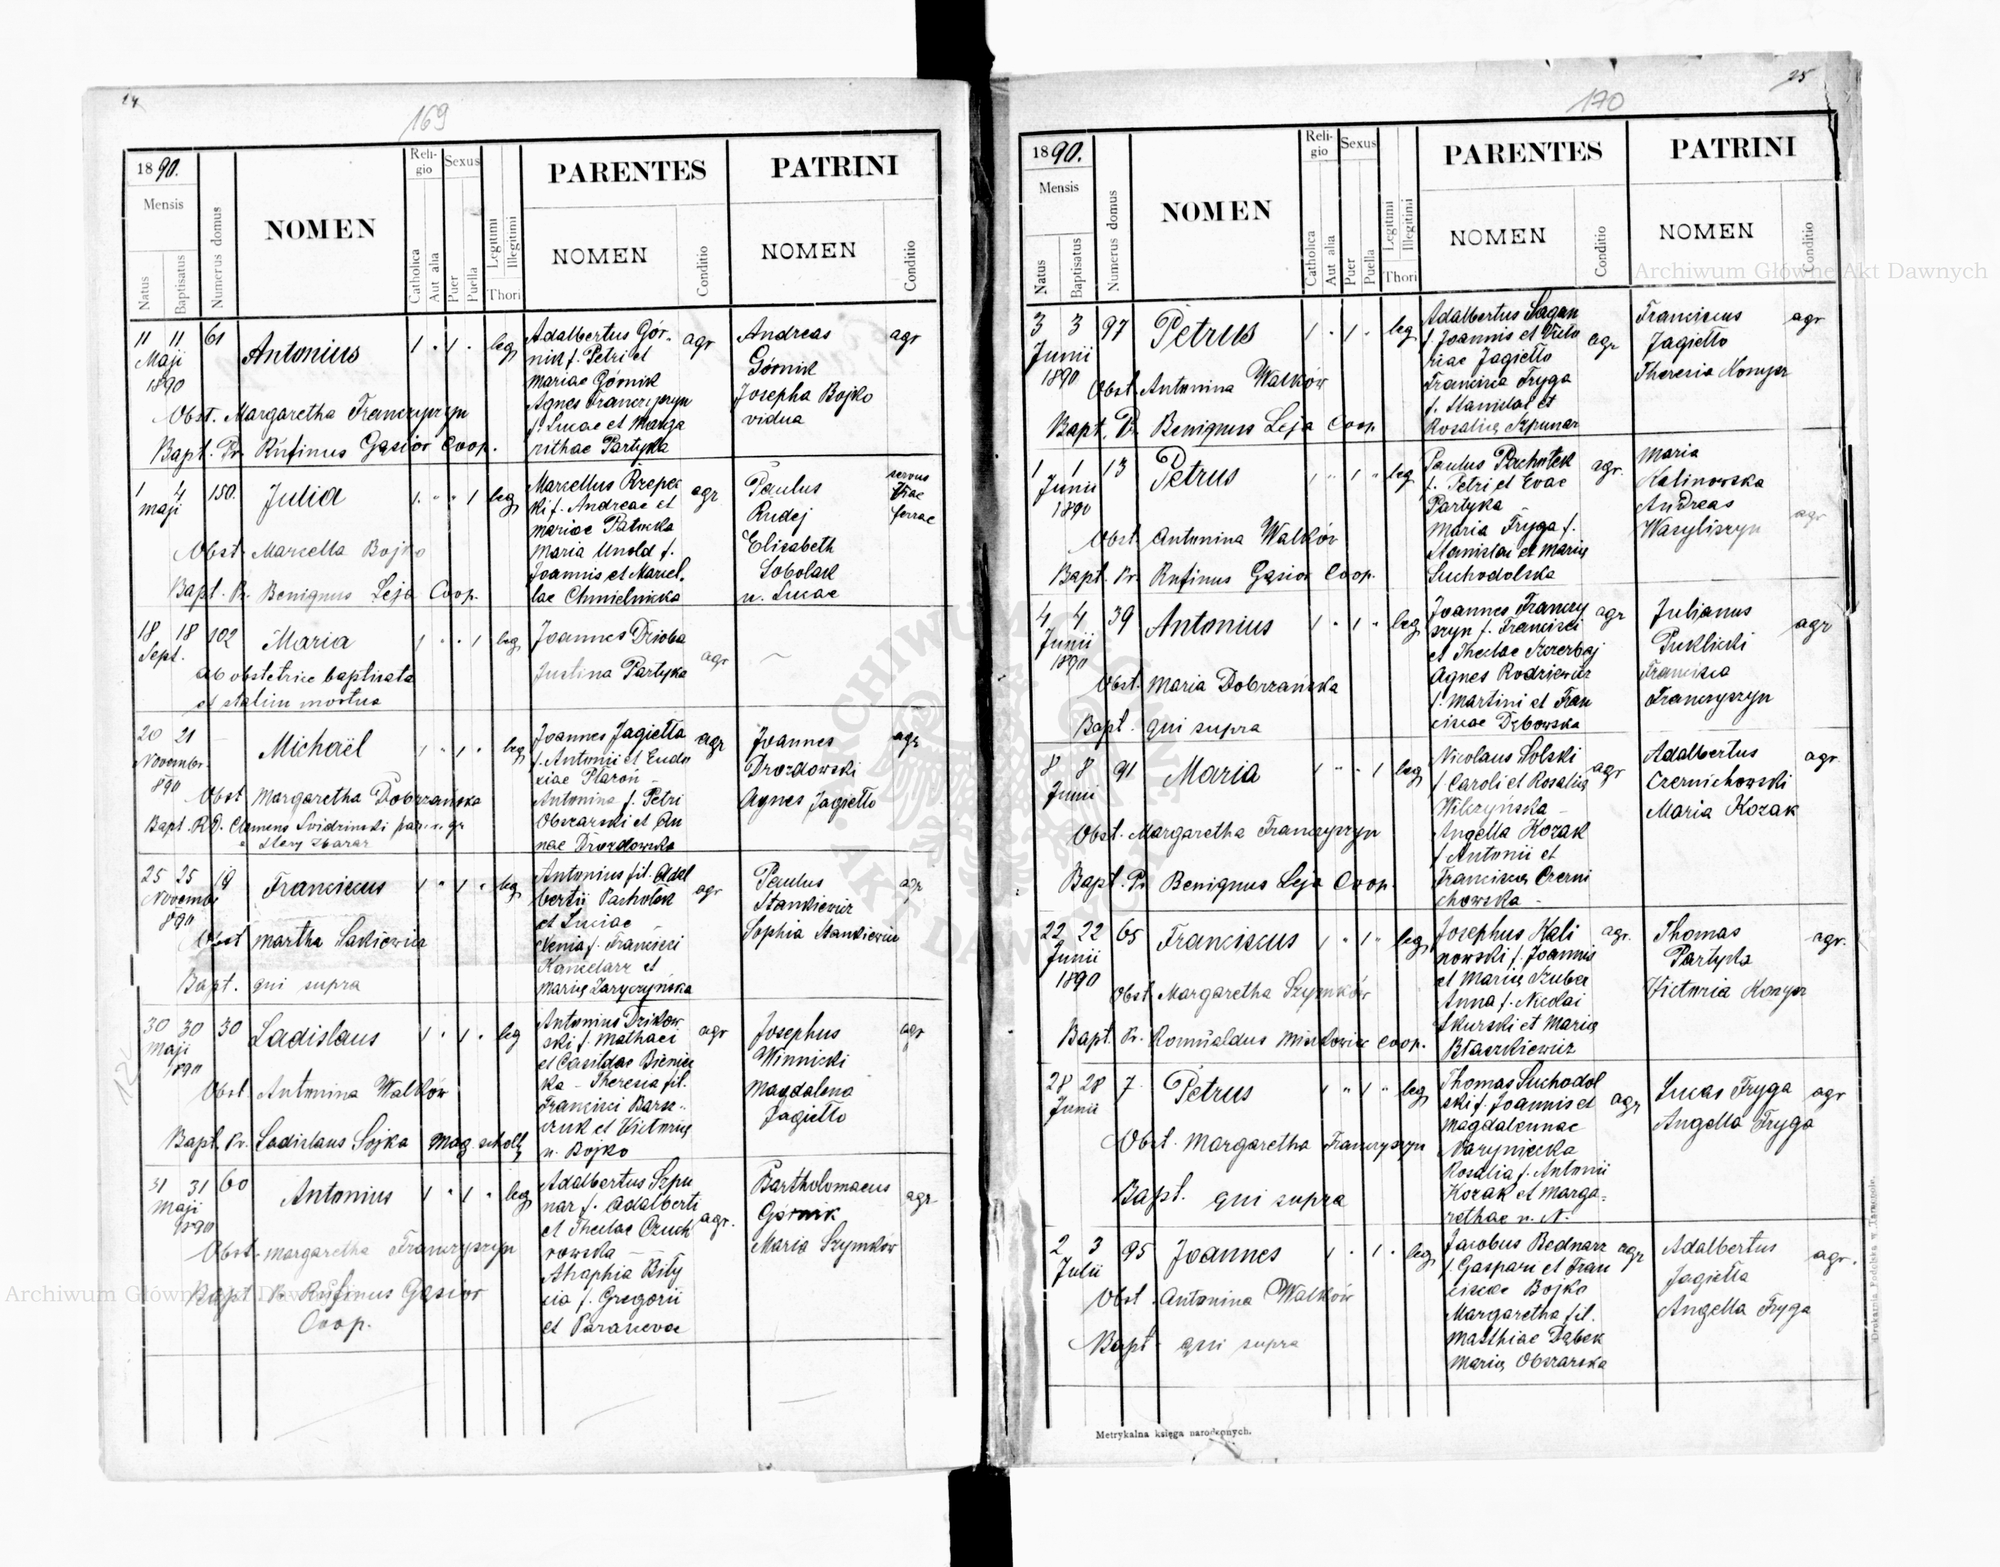 24
169
1890.
Mensis
Natus
Baptisatus
Numerus domus
NOMEN
Religio
Catholica
Aut alia
Sexus
Puer
Puella
Legitimi
Illegitimi
Thori
PARENTES
NOMEN
Conditio
PATRINI
NOMEN
Conditio
11 11 61 Antonius 1 " 1 " leg
Maji
1890
Obst. Margaretha Franczyszyn
Bapt. Pr. Rufinus Gąsior Coop.
Adalbertus Gór-
nik f. Petri et
Mariae Górnik
Agnes Franczyszyn
f. Lucae et Marga
rithae Partyka
agr
Andreas
Górnik
Josepha Bojko
vidua
agr
1 4 150. Julia 1 " " 1 leg
Maji
Obst. Marcella Bojko
Bapt. Pr. Benignus Leja Coop.
Marcellus Rzepec
ki f. Andreae et
Mariae
Maria Unold f.
Joannis et Marcel.
lae Chmielnicka
agr
Paulus
Rudej
Elisabeth
Sobolak
u. Lucae
servus
viae
ferrae
18 18 102 Maria 1 " " 1 leg
Sept.
ab obstetrice baptisata
et statim mortua
Joannes Dzioba
Justina Partyka
agr
20 21 – Michaël 1 " 1 " leg
Novembr.
1890
Obst Margaretha Dobrzańska
Bapt. R.D. Clemens
Zbaraż
Joannes Jagiełła
f. Antonii et Eudo
xiae Płaroń –
Antonina f. Petri
Obszarski et An
nae Drozdowska
agr
Joannes
Drozdowski
Agnes Jagiełło
agr
25 25 19 Franciscus 1 " 1 " leg
Novembr
1890
Obst Martha Sakiewicz
Bapt. qui supra
Antonius fil. Adal
berti Pacholek
et Luciae –
Xenia f. Francisci
Kanclarz et
Mariæ Zaryczyńska
agr
Paulus
Stankiewicz
Sophia Stankiewicz
agr
30 30 30 Ladislaus 1 " 1 " leg
Maji
1890
Obst Antonina Walków
Bapt. Pr. Ladislaus Sojka Mag. schol
Antonius Dzikow
ski f. Mathaei
et Casildae Bieniec
ka – Theresia fil.
Francisci Barsz-
czuk et Victoriæ
n. Bojko
agr
Josephus
Winnicki
Magdalena
Jagiełło
agr
31 31 60 Antonius 1 " 1 " leg
Maji
1890
Obst. Margaretha Franczyszyn
Bapt Pr. Rufinus Gąsior
Coop.
Adalbertus Szpu
nar f. Adalberti
et Theclae Czuch
rowska –
Ahaphia Bily
cia f. Gregorii
et Parascevae
agr.
Bartholomaeus
Górnik
Maria Szymków
agr
25
170
1890.
Mensis
Natus
Baptisatus
Numerus domus
NOMEN
Religio
Catholica
Aut alia
Sexus
Puer
Puella
Legitimi
Illegitimi
Thori
PARENTES
NOMEN
Conditio
PATRINI
NOMEN
Conditio
3 3 97 Petrus 1 " 1 " leg
Junii
1890
Obst. Antonina Walków
Bapt. Pr. Benignus Leja Coop.
Adalbertus Sagan
f. Joannis et Victo
riae Jagiełło
Francisca Fryga
f. Stanislai et
Rosaliæ Szpunar
agr
Franciscus
Jagiełło
Theresia Konysz
agr
1 1 13 Petrus 1 " 1 " leg
Junii
1890
Obst. Antonina Walków
Bapt. Pr. Rufinus Gąsior Coop.
Paulus Pacholek
f. Petri et Evae
Partyka
Maria Fryga f.
Stanislai et Mariæ
Suchodolska
agr.
Maria
Kalinowska
Andreas
Wasyliszyn
agr
4 4 39 Antonius 1 " 1 " leg
Junii
1890
Obst. Maria Dobrzańska
Bapt. qui supra
Joannes Franczy
szyn f. Francisci
et Theclae Szczerbaj
Agnes Rodziewicz
f. Martini et Fran
ciscae Dębowska
agr
Julianus
Puklicki
Francisca
Franczyszyn
agr
8 8 91 Maria 1 " " 1 leg
Junii
Obst. Margaretha Franczyszyn
Bapt. Pr Benignus Leja Coop.
Nicolaus Solski
f Caroli et Rosaliæ
Wilczyńska –
Angella Kozak
f Antonii et
Franciscæ Czerni
chowska –
agr
Adalbertus
Czernichowski
Maria Kozak
agr
22 22 65 Franciscus 1 " 1 " leg
Junii
1890
Obst. Margaretha Szymków
Bapt. Pr. Romualdus Coop.
Josephus Kali
nowski f. Joannis
et Mariæ Szuba
Anna f. Nicolai
Skurski et Mariæ
Błaszkiewicz
agr.
Thomas
Partyka
Victoria Konysz
agr.
28 28 7 Petrus 1 " 1 " leg
Junii
Obst. Margaretha Franczyszyn
Bapt. qui supra
Thomas Suchodol
ski f. Joannis et
Magdalennae
Rosalia f. Antonii
Kozak et Marga-
rethae n. N.
agr
Lucas Fryga
Angella Fryga
agr
2 3 95 Joannes 1 " 1 " leg
Julii
Obst. Antonina Walków
Bapt. qui supra
Jacobus Bednarz
f. Gaspari et Fran
ciscae Bojko
Margaretha fil.
Matthiae Dąbek
Mariæ Obszarska
agr
Adalbertus
Jagiełła
Angella Fryga
agr.
Metrykalna księga narodzonych.
Drukarnia Podolska w Tarnopole.
Archiwum Główne Akt Dawnych
Archiwum Główne Akt Dawnych
ARCHIWUM GŁÓWNE AKT DAWNYCH